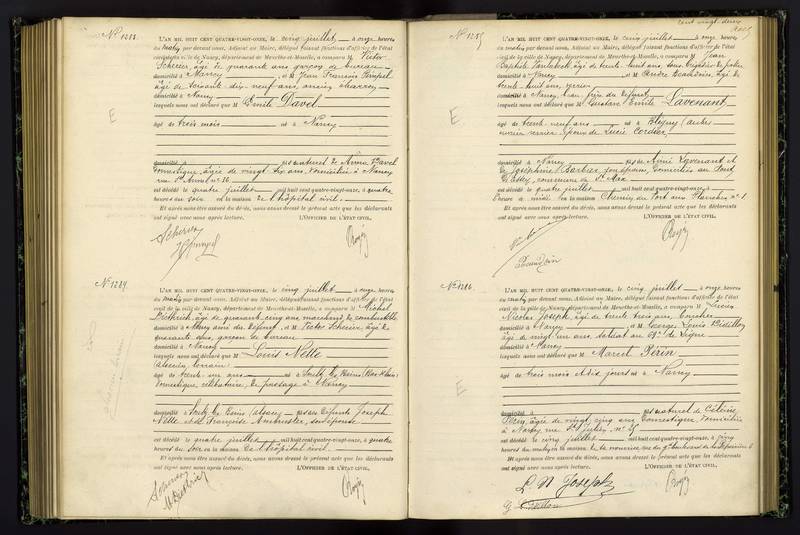 N° 1283.
L'AN MIL HUIT CENT QUATRE-VINGT-ONZE, le cinq juillet à onze heures
du matin, par devant nous, Adjoint au Maire, délégué faisant fonctions d'officier de l'état
civil de la ville de Nancy, département de Meurthe-et-Moselle, a comparu M Victor
Scherier, âgé de quarante ans, garçon de bureau
domicilié à Nancy et M Jean François
âgé de soixante dix neuf ans, ancien
domicilié à Nancy
lesquels nous ont déclaré que M Emile Davel
E
âgé de trois mois né à Nancy
domicilié à fils naturel de Anna Davel
domestique, âgée de vingt six ans, domiciliée à Nancy
rue St
est décédé le quatre juillet mil huit cent quatre-vingt-onze, à quatre
heures du soir en la maison de l'hôpital civil.
Et après nous être assuré du décès, nous avons dressé le présent acte que les déclarants
ont signé avec nous après lecture. L'OFFICIER DE L'ÉTAT CIVIL,
N° 1284.
L'AN MIL HUIT CENT QUATRE-VINGT-ONZE, le cinq juillet à onze heures
du matin, par devant nous, Adjoint au Maire, délégué faisant fonctions d'officier de l'état
civil de la ville de Nancy, département de Meurthe-et-Moselle, a comparu M Michel
Diethrich, âgé de quarante cinq ans, marchand de combustible
domicilié à Nancy ami du défunt, et M Victor Scherier, âgé de
quarante ans, garçon de bureau
domicilié à Nancy
lesquels nous ont déclaré que M Louis Nelle
(alsacien lorrain)
âgé de trente un ans né à Soultz les Bains (Bas-Rhin)
domestique, célibataire, de passage à Nancy
domicilié à Soultz les Bains (Alsace) fils de défunts Joseph
Nelle et de Françoise Ambruster, son épouse
est décédé le quatre juillet mil huit cent quatre-vingt-onze, à quatre
heures du soir en la maison de l'hôpital civil.
Et après nous être assuré du décès, nous avons dressé le présent acte que les déclarants
ont signé avec nous après lecture. L'OFFICIER DE L'ÉTAT CIVIL,
cent vingt-deux
N° 1285
L'AN MIL HUIT CENT QUATRE-VINGT-ONZE, le cinq juillet à onze heures
du matin, par devant nous, Adjoint au Maire, délégué faisant fonctions d'officier de l'état
civil de la ville de Nancy, département de Meurthe-et-Moselle, a comparu M Jean
Baptiste âgé de trente huit ans, sous brigadier de police
domicilié à Nancy et M André Beaudoin, âgé de
trente huit ans, verrier
domicilié à Nancy, beau frère du défunt
lesquels nous ont déclaré que M Gustave Emile Lavenant
E
âgé de trente neuf ans né à Bligny (Aube)
ouvrier verrier, époux de Lucie Cordier
domicilié à Nancy fils de Aimé Lavenant et
de Joséphine Barbier, son épouse, domiciliés au Pont
d'Essey, commune de St Max
est décédé le quatre juillet mil huit cent quatre-vingt-onze, à
heure à midi en la maison Chemin du Pont aux Planches n° 1
Et après nous être assuré du décès, nous avons dressé le présent acte que les déclarants
ont signé avec nous après lecture. L'OFFICIER DE L'ÉTAT CIVIL,
Beaudoin
N° 1286.
L'AN MIL HUIT CENT QUATRE-VINGT-ONZE, le cinq juillet à onze heures
du matin, par devant nous, Adjoint au Maire, délégué faisant fonctions d'officier de l'état
civil de la ville de Nancy, département de Meurthe-et-Moselle, a comparu M Lucien
Nicolas Joseph, âgé de trente trois ans,
domicilié à Nancy et M Georges Louis
âgé de vingt un ans, soldat au de ligne
domicilié à Nancy
lesquels nous ont déclaré que M Marcel Périn
E
âgé de trois mois et dix jours né à Nancy
domicilié à fils naturel de
Périn, âgée de vingt cinq ans, domestique, domiciliée
à Nancy rue St Julien
est décédé le cinq juillet mil huit cent quatre-vingt-onze, à cinq
heures du matin en la maison de sa nourrice
Et après nous être assuré du décès, nous avons dressé le présent acte que les déclarants
ont signé avec nous après lecture. L'OFFICIER DE L'ÉTAT CIVIL,
L N Joseph